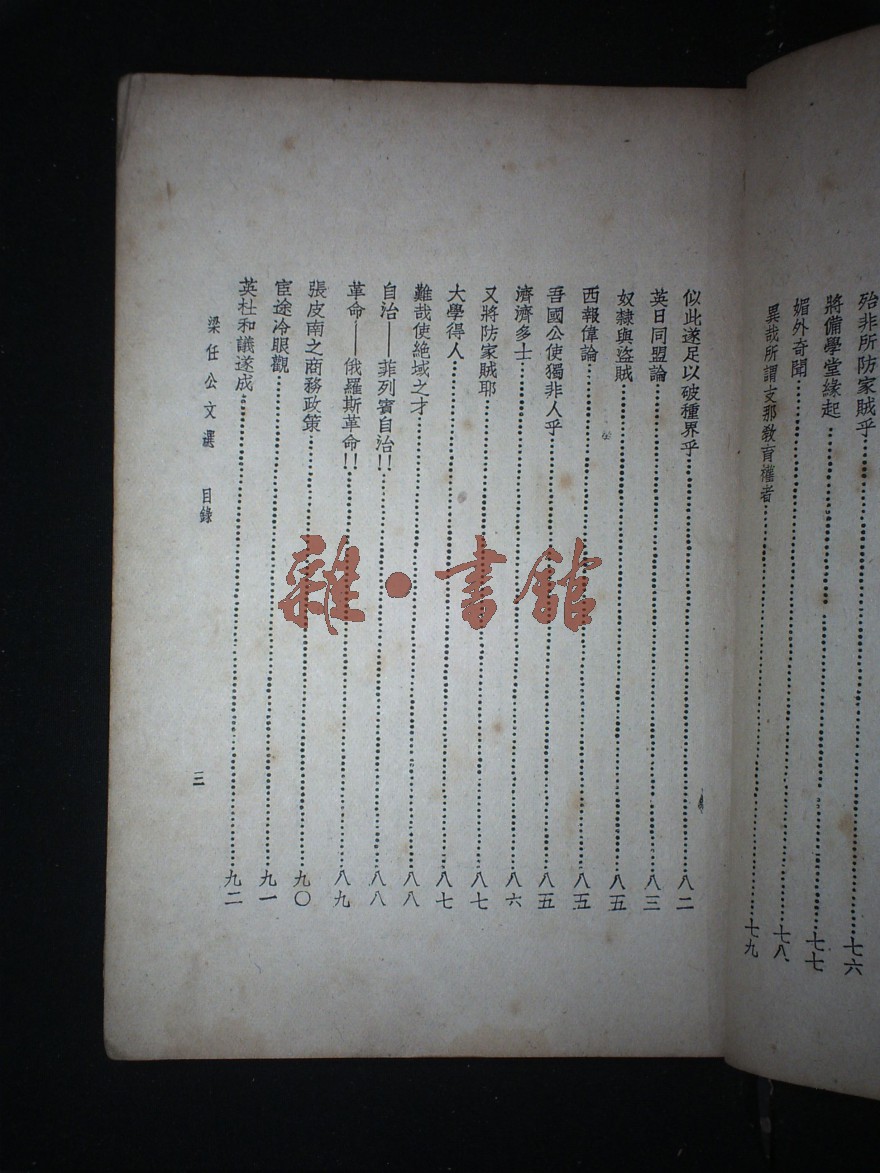 殆非所防家賊乎……七六
將備學堂緣起……七七
媚外奇聞……七八
異哉所謂支那敎育權者……七九
似此遂足以破種界乎……八二
英日同盟論……八三
奴隸與盜賊……八五
西報偉論……八五
吾國公使獨非人乎……八五
濟濟多士……八六
又將防家賊耶……八七
大學得人……八七
難哉使絕域之才……八八
自治——菲列賓自治!!……八八
革命——俄羅斯革命!!……八九
張皮南之商務政策……九〇
宦途冷眼觀……九一
英杜和議遂成……九二
梁任公文選 目錄
三
雜·書館